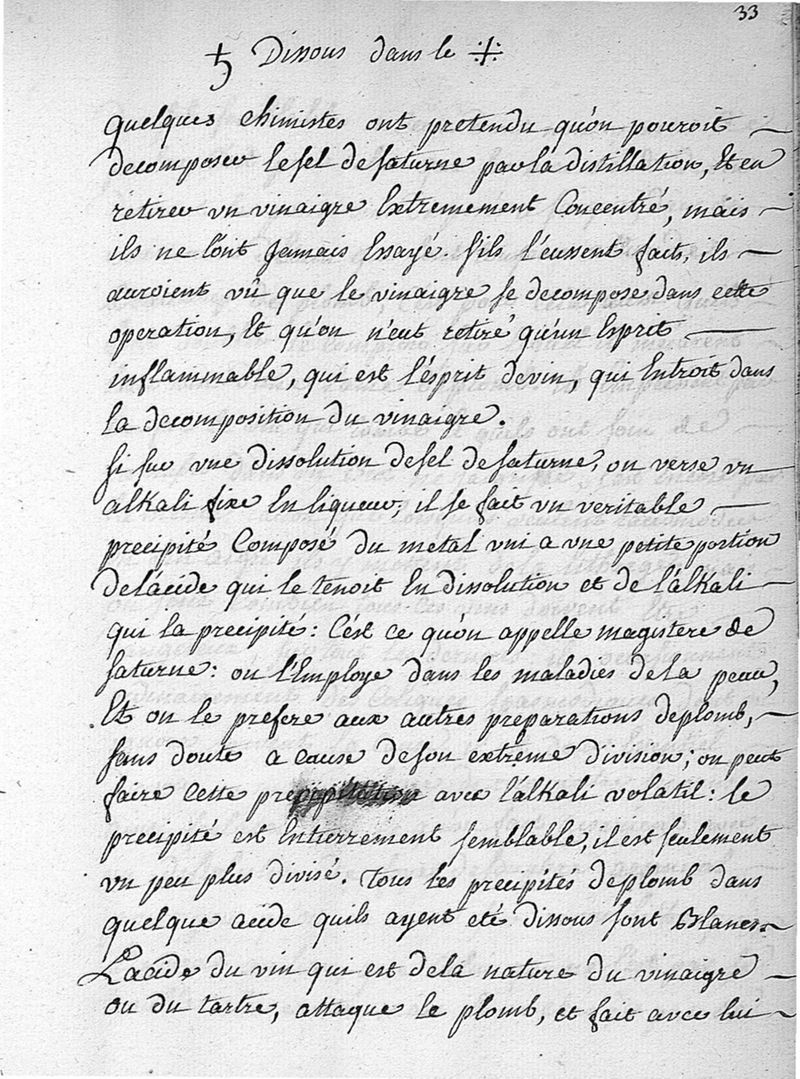 33
♄ Dissous dans le
quelques chimistes ont pretendu qu'on pouroit
decomposer le sel de saturne par la distillation, Et en
retirer un vinaigre Extremement Concentré, mais
ils ne l'ont Jamais Essayé. s'ils l'eussent faits, ils
auroient vû que le vinaigre se decompose dans cette
operation, Et qu'on n'eut retiré qu'un Esprit
inflammable, qui est l'ésprit de vin, qui Entroit dans
la decomposition du vinaigre.
si sur une dissolution de sel de saturne, on verse un
alkali fixe En liqueur, il se fait un veritable
precipité Composé du metal uni a une petite portion
de l'acide qui le tenoit En dissolution et de l'alkali
qui la precipité : C'est ce qu'on appelle magistere de
saturne : on l'Employe dans les maladies de la peau,
Et on le prefere aux autres preparations de plomb,
sans doute a cause de son extrême division ; on peut
faire Cette precipitation avec l'alkali volatil : le
precipité est Entierrement semblable, il est seulement
un peu plus divisé. Tous les precipités de plomb dans
quelque acide quils ayent eté dissous sont Blancs.
L'acide du vin qui est de la nature du vinaigre
ou du tartre, attaque le plomb, et fait avec lui